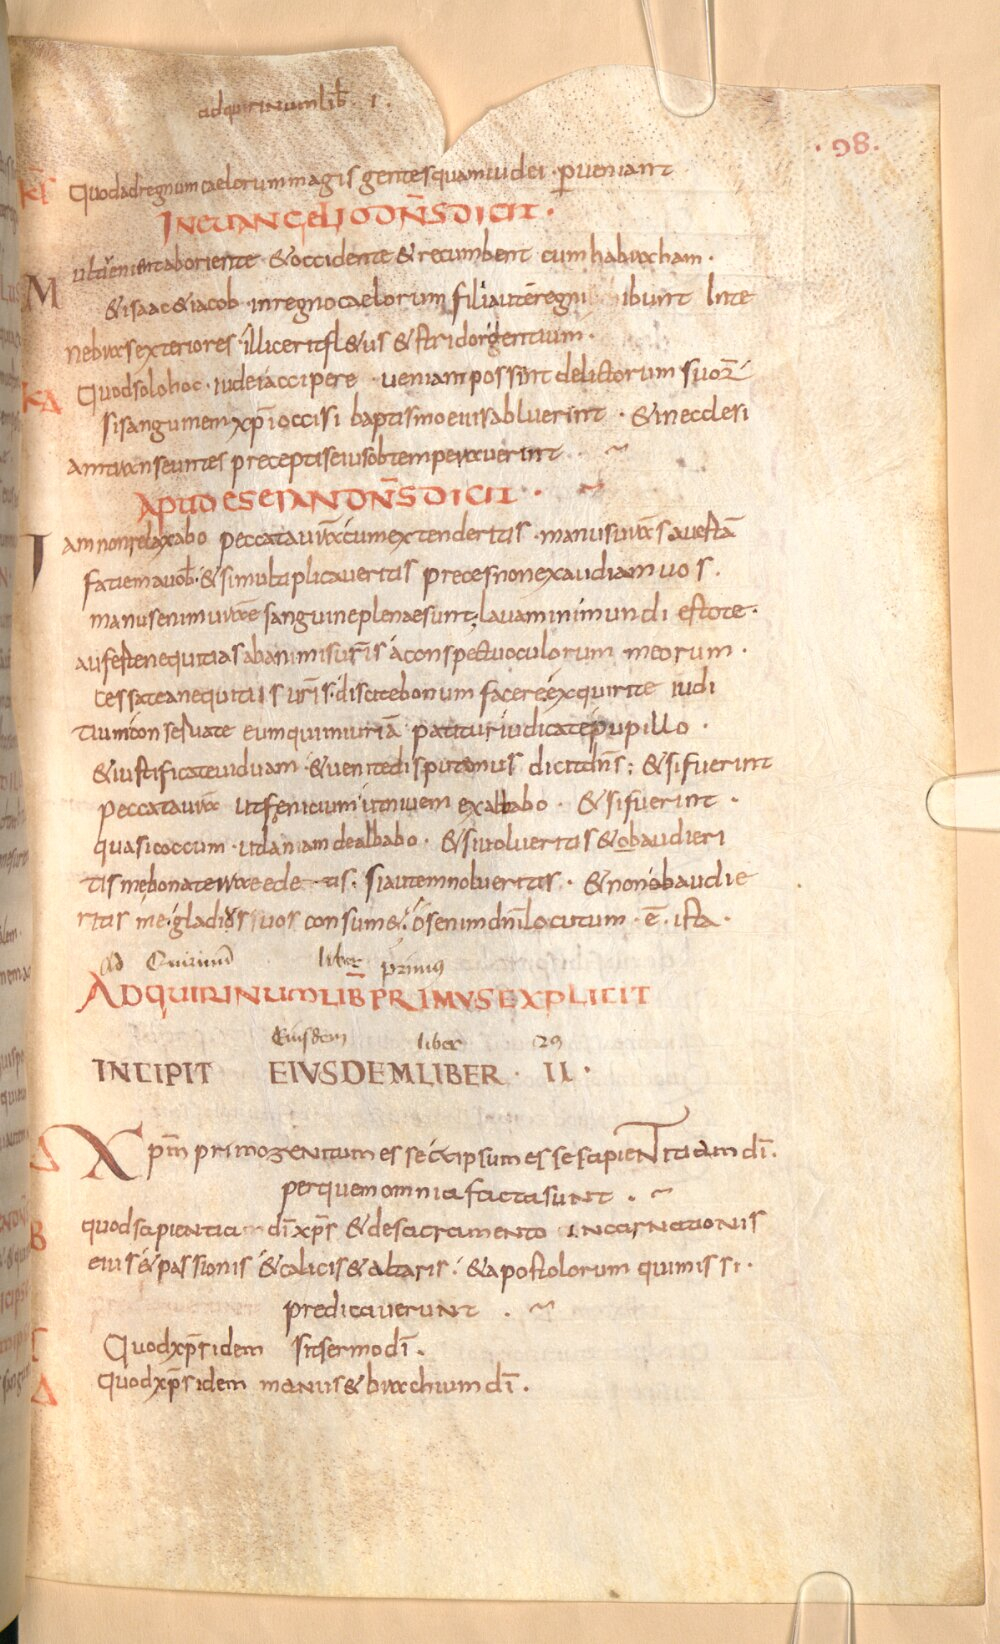 adquirinumlib̄ . I .
. 98 .
Quodadregnumcaelorummagis gentesquamiudei . ꝑueniant
INEVANGELIO DN̄S DICIT .
Multiuenientaboriente &occidente &recumbent cum habraham .
&isaac &iacob . inregnocaelorum filiautēregni ibunt Inte
nebrasexteriores . illiceritfl&us & stridorgentium .
KΔ Quodsolohoc . iudeiaccipere ueniampossint delictorum suoꝝ
sisanguinem xp̄i occisi baptismoeiusabluerint . &inecclesi
amtranseuntes preceptiseiusobtemperaverint .
APUD ESEIAN DN̄S DICIT .
Iam nonrelaxabo peccataur̄a cumextenderitis . manusur̄as auertā
faciemauob̄ . &simultiplicaveritis precesnonexaudiamuos .
manusenimur̄ae sanguineplenaesunt; lavaminimundi estote .
aufertenequitiasabanimisur̄is aconspectuoculorum meorum .
cessateanequitiis ur̄is . discitebonum facere exquirite iudi
tium conseruate eumquiiniuriā patitur iudicatepupillo .
&iustificateuiduam . &uenitedisputemus dicitdn̄s ; &sifuerint
peccataur̄a utfenicium utniuem exalbabo . &sifuerint .
quasicoccum . utlanamdealbabo . &siuolueritis &obaudieri
tis mebonaterraeede tis . siautemnolueritis . &nonobaudie
ritis me . gladius uos consum& . osenimdn̄ilocutum . ē . ista .
Ad Quirinū liber primus
ADQUIRINUMLIB̄ PRIMVS EXPLICIT
Eiusdem liber 29
INCIPIT EIVSDEM LIBER . II .
Δ Xp̄m primogenitum esse & ipsum esse sapientiam dī .
perquemomnia factasunt .
B quodsapientia dī xp̄s & desacramento incarnationis
eius &passionis &calicis & altaris . &apostolorum quimissi .
predicaverunt .
Γ Quodxp̄s idem sitsermodī .
Δ quodxp̄s idem manus & brachiumdī .